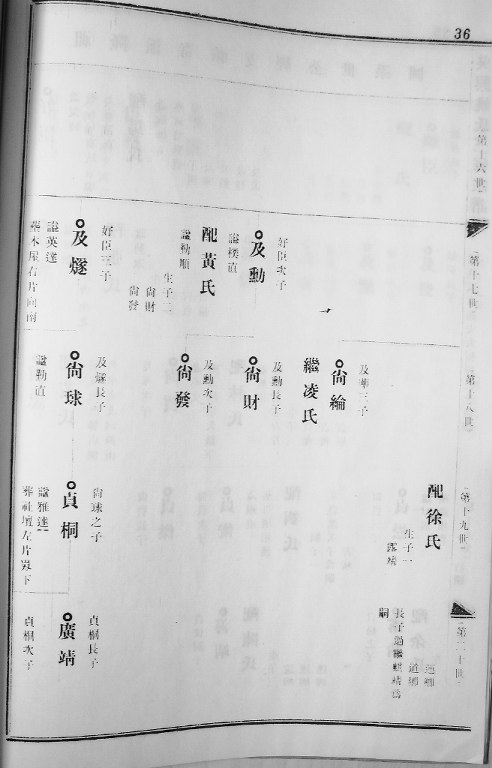 36
第十六世
第十七世
第十八世
第十九世
第二十世
配徐氏
生子一
露靖
長子過繼麒靖為
嗣
及華三子
尙綸
繼凌氏
好臣次子
及勳
諡樸直
配黃氏
諡勤順
生子二
尙財
尙發
及勳長子
尙財
及勳次子
尙發
好臣三子
及燧
諡英達
及燧長子
尙球
諡勤直
尙球之子
貞桐
諡雅達
葬社壇左片嵏下
貞桐長子
廣靖
貞桐次子